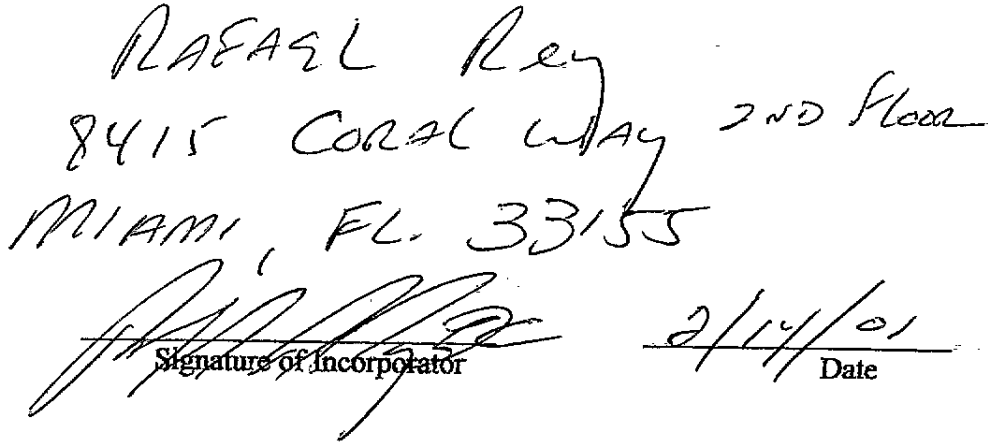 RAFAEL Rey
8415 CORAL WAy 2ND FLOOR
MIAMI, FL. 33155
Signature of Incorporator
2/14/01
Date